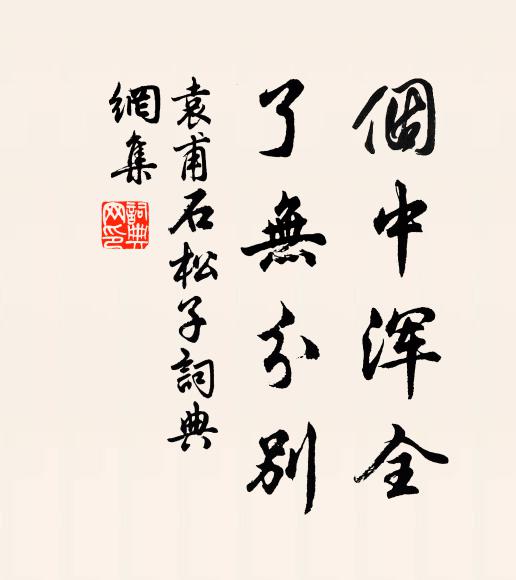 個中浑全
了無分别
袁甫石松子詞典
網集
詞典
网印